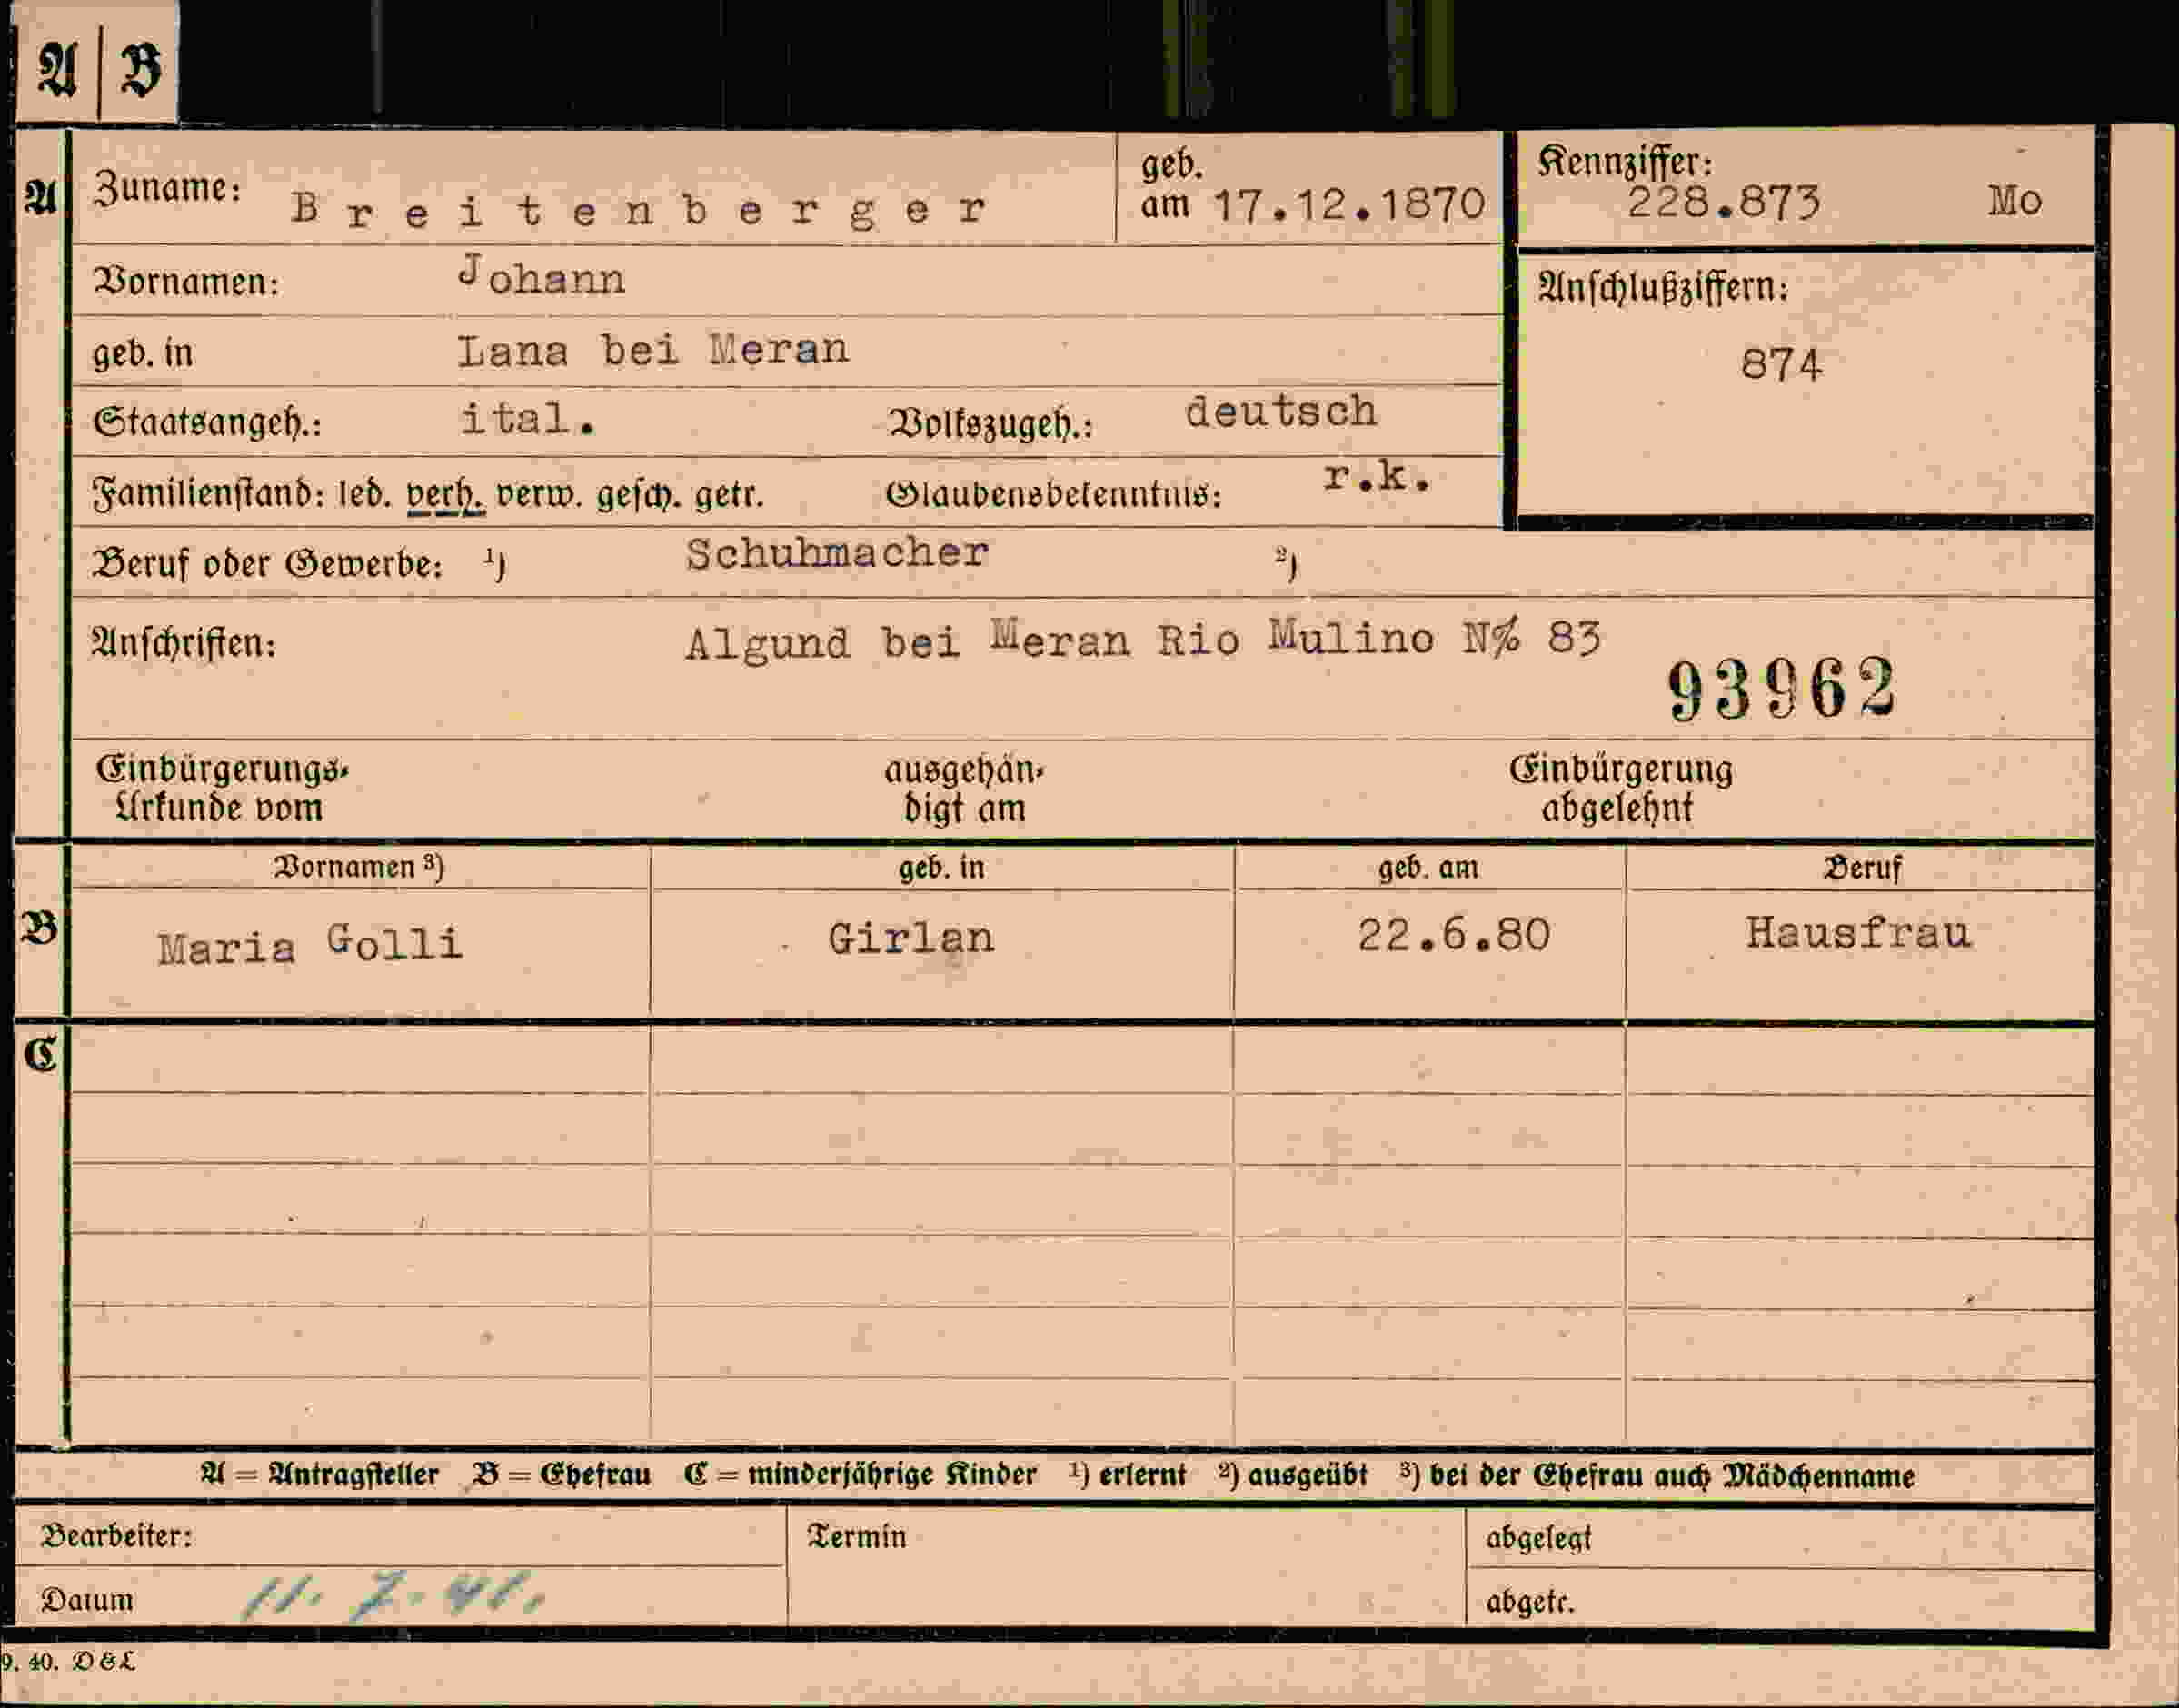 A | B
A Zuname: Breitenberger geb. am 17.12.1870 Kennziffer: 228.873 Mo
Vornamen: Johann
Anschlußziffern:
geb. in Lana bei Meran
874
Staatsangeh.: ital. Volkszugeh.: deutsch
Familienstand: led. verh. verw. gesch. getr. Glaubensbekenntnis: r.k.
Beruf oder Gewerbe: ¹) Schuhmacher ²)
Anschriften: Algund bei Meran Rio Mulino N% 83
93962
Einbürgerungs- ausgehän- Einbürgerung
Urkunde vom digt am abgelehnt
Vornamen ³) geb. in geb. am Beruf
B Maria Golli Girlan 22.6.80 Hausfrau
C
A = Antragsteller B = Ehefrau C = minderjährige Kinder ¹) erlernt ²) ausgeübt ³) bei der Ehefrau auch Mädchenname
Bearbeiter: Termin abgelegt
Datum 11. 7. 41. abgetr.
9. 40. D&L